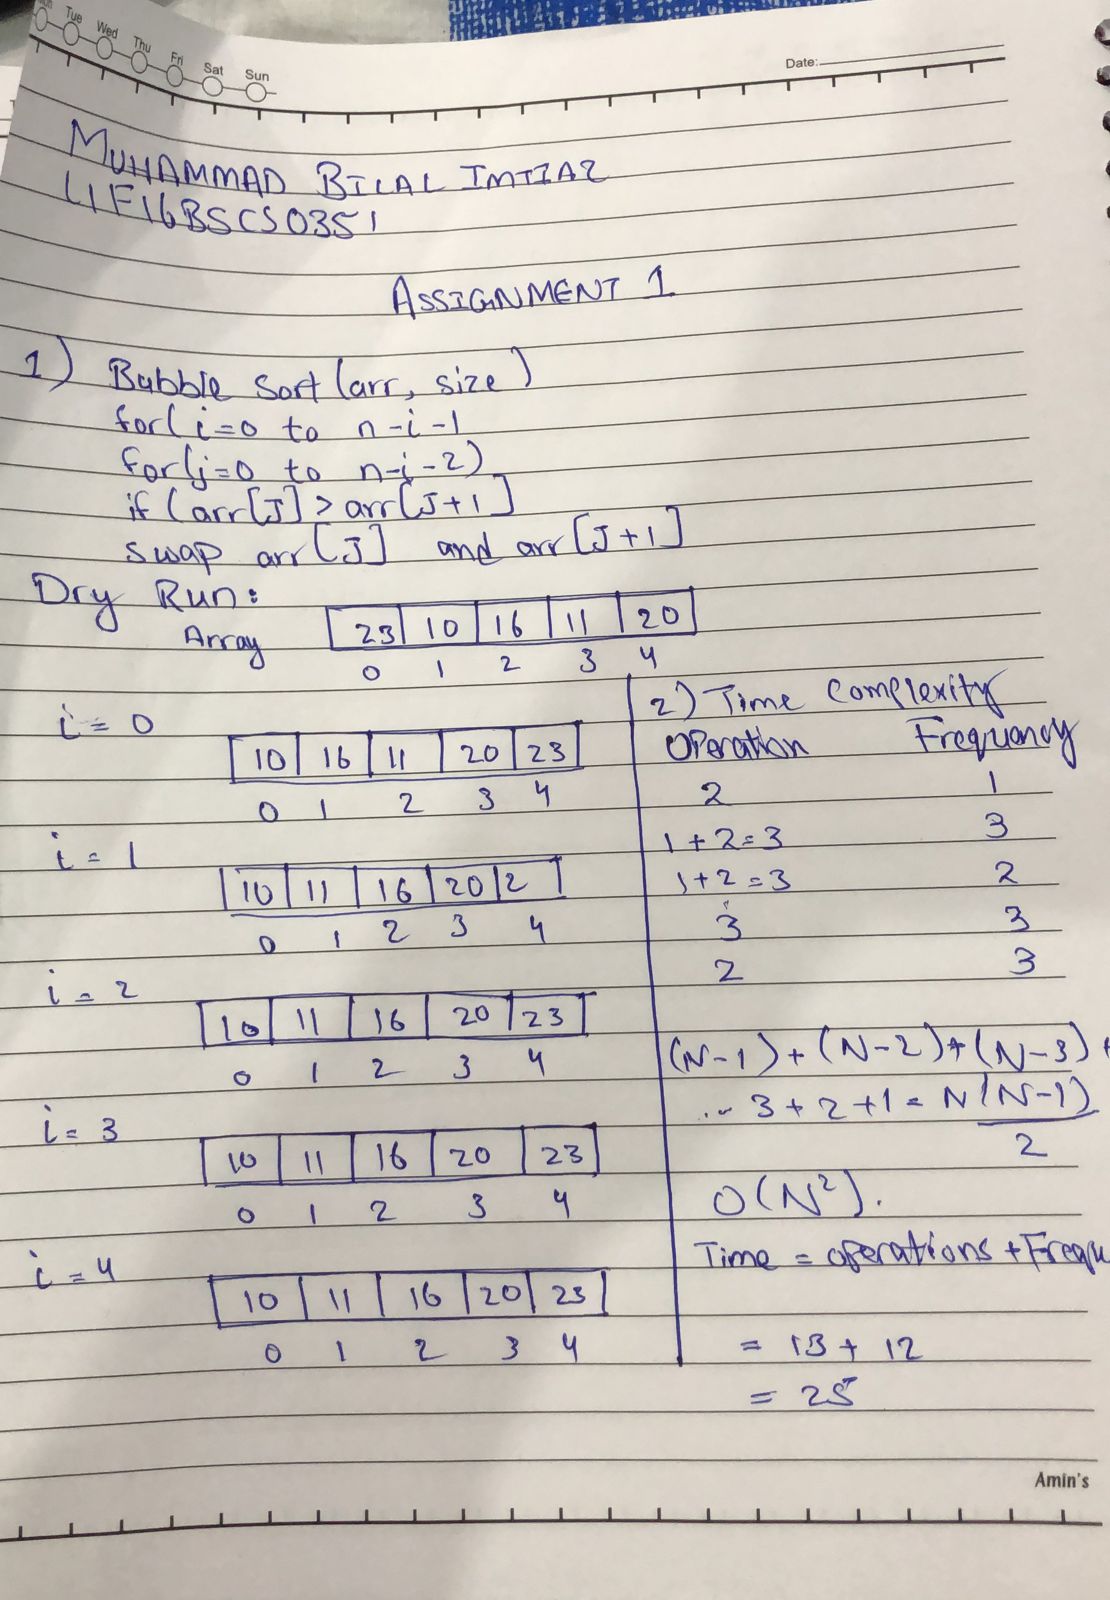 Tue Wed Thu Fri Sat Sun
Date:
MUHAMMAD BILAL IMTIAZ
L1F16BSCS0351
ASSIGNMENT 1
1) Bubble Sort (arr, size)
for( i=0 to n-i-1
for(j=0 to n-i-2)
if (arr[J] > arr[J+1]
swap arr[J] and arr[J+1]
Dry Run:
Array 23 10 16 11 20
0 1 2 3 4
i = 0
10 16 11 20 23
0 1 2 3 4
i = 1
10 11 16 20 2
0 1 2 3 4
i = 2
10 11 16 20 23
0 1 2 3 4
i = 3
10 11 16 20 23
0 1 2 3 4
i = 4
10 11 16 20 23
0 1 2 3 4
2) Time Complexity
Operation Frequency
2 1
1+2=3 3
1+2=3 2
3 3
2 3
(N-1)+(N-2)+(N-3)+
... 3+2+1 = N(N-1)
2
O(N²).
Time = operations + Frequ
= 13 + 12
= 25
Amin's